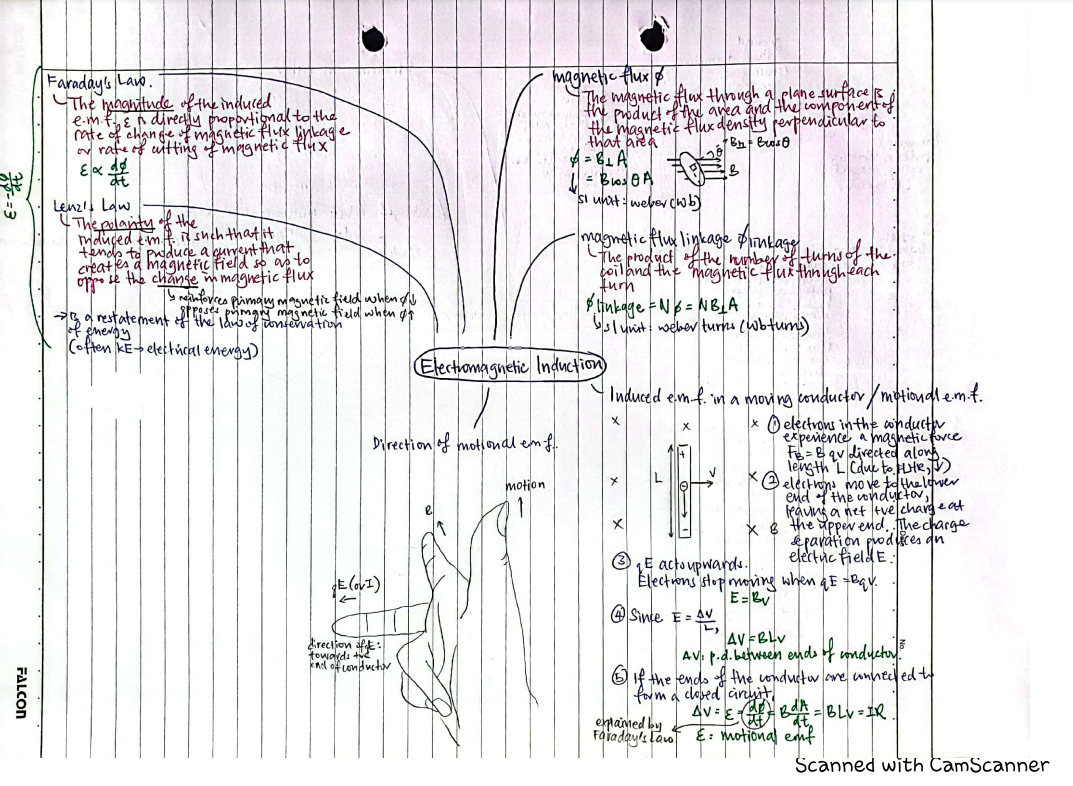 Faraday's Law.
The magnitude of the induced
e.m.f. ε is directly proportional to the
rate of change of magnetic flux linkage
or rate of cutting of magnetic flux
ε ∝ dφ/dt
ε = dφ/dt
Lenz's Law
The polarity of the
induced e.m.f. is such that it
tends to produce a current that
creates a magnetic field so as to
oppose the change in magnetic flux
reinforces primary magnetic field when φ↓
opposes primary magnetic field when φ↑
→ is a restatement of the law of conservation
of energy
(often KE → electrical energy)
magnetic flux φ
The magnetic flux through a plane surface is
the product of the area and the component of
the magnetic flux density perpendicular to
that area
φ = B⊥A
= Bcosθ A
SI unit: weber (Wb)
θ
B⊥ = Bcosθ
B
magnetic flux linkage φlinkage
The product of the number of turns of the
coil and the magnetic flux through each
turn
φlinkage = Nφ = NB⊥A
SI unit: weber turns (Wb turns)
Electromagnetic Induction
Direction of motional e.m.f.
motion
B
E (or I)
direction of E:
towards +ve
end of conductor
Induced e.m.f. in a moving conductor / motional e.m.f.
x x x
x x
x x B
L
+
v
-
① electrons in the conductor
experience a magnetic force
F_B = Bqv directed along
length L (due to FLHR, ↓)
② electrons move to the lower
end of the conductor,
leaving a net +ve charge at
the upper end. The charge
separation produces an
electric field E.
③ qE acts upwards.
Electrons stop moving when qE = Bqv.
E = Bv
④ Since E = ΔV/L,
ΔV = BLv
ΔV: p.d. between ends of conductor.
⑤ If the ends of the conductor are connected to
form a closed circuit,
ΔV = ε = dφ/dt = B dA/dt = BLv = IR
explained by
Faraday's Law
ε: motional emf
No
FALCON
Scanned with CamScanner